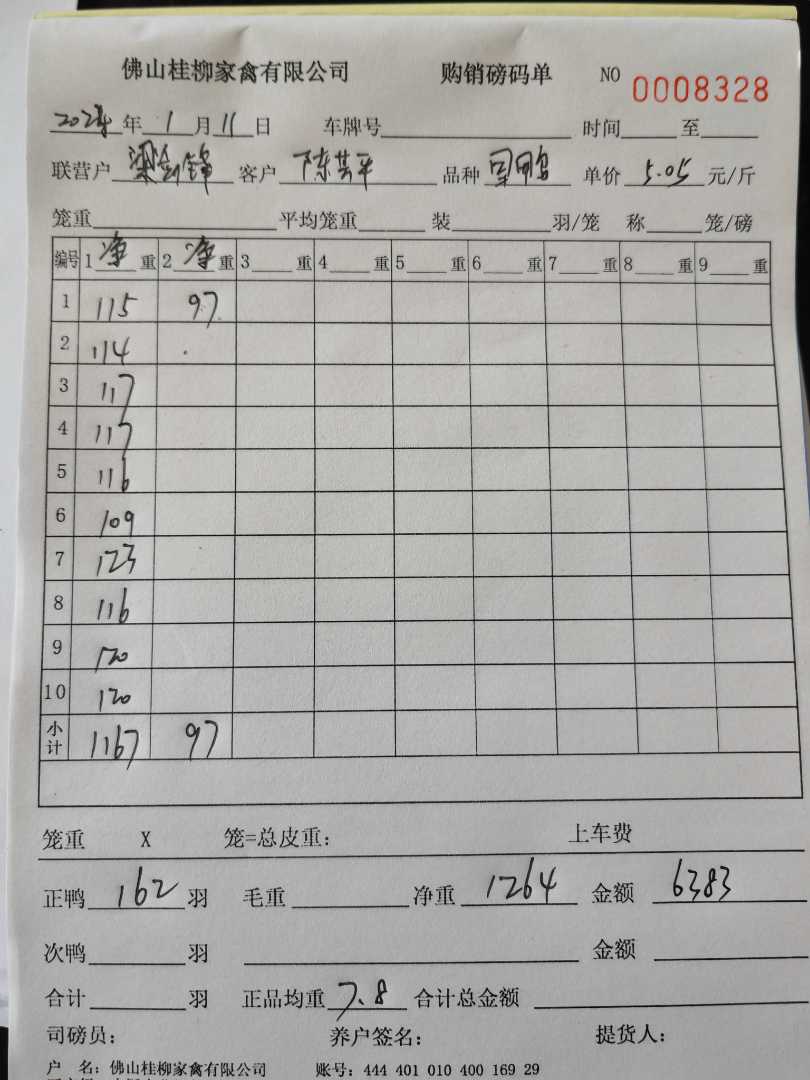 佛山桂柳家禽有限公司 购销磅码单 NO 0008328
年 1 月 11 日 车牌号 时间 至
联营户 梁剑锋 客户 陈其平 品种 单价 5.05 元/斤
笼重 平均笼重 装 羽/笼 称 笼/磅
编号 1 净 重 2 净 重 3 重 4 重 5 重 6 重 7 重 8 重 9 重
1 115 97
2 114
3 117
4 117
5 116
6 109
7 123
8 116
9 120
10 120
小计 1167 97
笼重 X 笼=总皮重： 上车费
正鸭 162 羽 毛重 净重 1264 金额 6383
次鸭 羽 金额
合计 羽 正品均重 7.8 合计总金额
司磅员： 养户签名： 提货人：
户 名：佛山桂柳家禽有限公司 账号：444 401 010 400 169 29